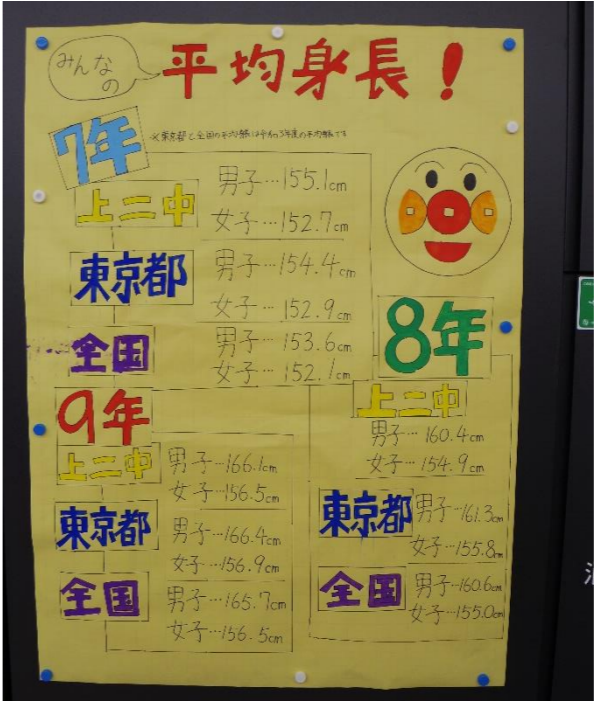 みんなの
平均身長！
7年
※東京都と全国の平均身長は令和3年度の平均身長です
上二中
男子…155.1cm
女子…152.7cm
東京都
男子…154.4cm
女子…152.9cm
全国
男子…153.6cm
女子…152.1cm
8年
上二中
男子…160.4cm
女子…154.9cm
東京都
男子…161.3cm
女子…155.8cm
全国
男子…160.6cm
女子…155.0cm
9年
上二中
男子…166.1cm
女子…156.5cm
東京都
男子…166.4cm
女子…156.9cm
全国
男子…165.7cm
女子…156.5cm